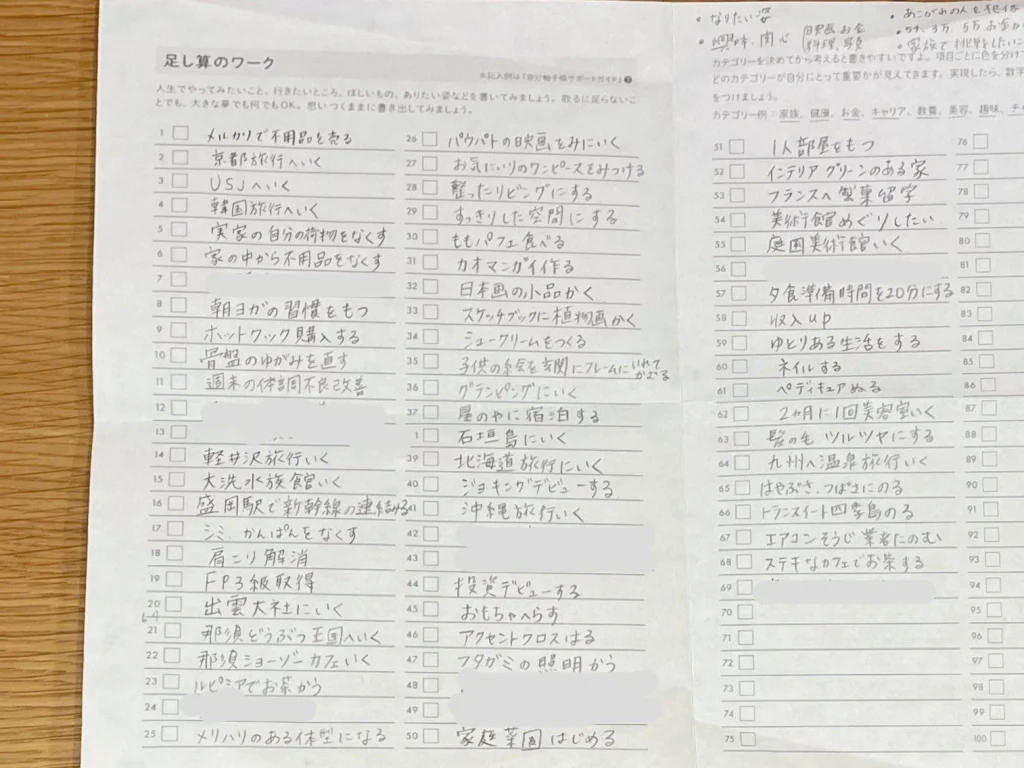 足し算のワーク
※記入例は「自分軸手帳サポートガイド」
人生でやってみたいこと、行きたいところ、ほしいもの、ありたい姿などを書いてみましょう。叶るに足らないこ
とでも、大きな夢でも何でもOK。思いつくままに書き出してみましょう。
1 メルカリで不用品を売る
2 京都旅行へいく
3 USJへいく
4 韓国旅行へいく
5 実家の自分の荷物をなくす
6 家の中から不用品をなくす
7
8 朝ヨガの習慣をもつ
9 ホットクック購入する
10 骨盤のゆがみを直す
11 週末の体調不良改善
12
13
14 軽井沢旅行いく
15 大洗水族館いく
16 盛岡駅で新幹線の連結みる
17 シミ、かんぱんをなくす
18 肩こり解消
19 FP3級取得
20 出雲大社にいく
21 那須どうぶつ王国へいく
22 那須ショーゾーカフェいく
23 ルピシアでお茶かう
24
25 メリハリのある体型になる
26 パウパトの映画をみにいく
27 お気にいりのワンピースをみつける
28 整ったリビングにする
29 すっきりした空間にする
30 ももパフェ食べる
31 カオマンガイ作る
32 日本画の小品かく
33 スケッチブックに植物画かく
34 シュークリームをつくる
35 子供の絵を玄関にフレームにいれてかざる
36 グランピングにいく
37 星のやに宿泊する
石垣島にいく
39 北海道旅行にいく
40 ジョギングデビューする
沖縄旅行いく
42
43
44 投資デビューする
45 おもちゃへらす
46 アクセントクロスはる
47 フタガミの照明かう
48
49
50 家庭菜園はじめる
・なりたい姿
・興味・関心 映画、お金
料理、
・あこがれの人を
3万 5万 お金
・家族で挑戦したいこ
カテゴリーを決めてから考えると書きやすいですよ。項目ごとに色を分けて
どのカテゴリーが自分にとって重要かが見えてきます。実現したら、数字
をつけましょう。
カテゴリー例：家族、健康、お金、キャリア、教養、美容、趣味、チ
51 1人部屋をもつ
52 インテリアグリーンのある家
53 フランスへ製菓留学
54 美術館めぐりしたい
55 庭園美術館いく
56
57 夕食準備時間を20分にする
58 収入up
59 ゆとりある生活をする
60 ネイルする
61 ペディキュアぬる
62 2か月に1回美容室いく
63 髪の毛ツルツヤにする
64 九州へ温泉旅行いく
65 はやぶさ、つばさにのる
66 トランスイート四季島のる
67 エアコンそうじ業者にのむ
68 ステキなカフェでお茶する
69
70
71
72
73
74
75
76
77
78
79
80
81
82
83
84
85
86
87
88
89
90
91
92
93
94
95
96
97
98
99
100